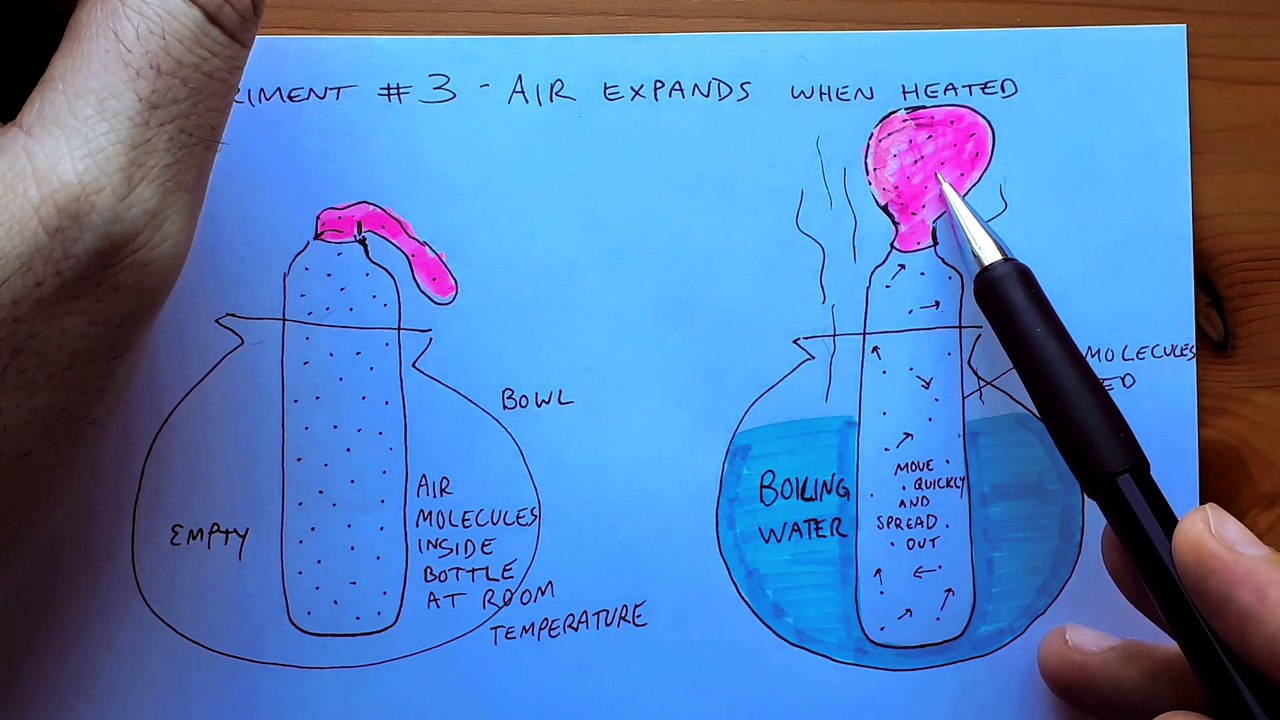 RIMENT #3 - AIR EXPANDS WHEN HEATED
BOWL
EMPTY
AIR
MOLECULES
INSIDE
BOTTLE
AT ROOM
TEMPERATURE
BOILING
WATER
MOVE
QUICKLY
AND
SPREAD
OUT
MOLECULES
ED